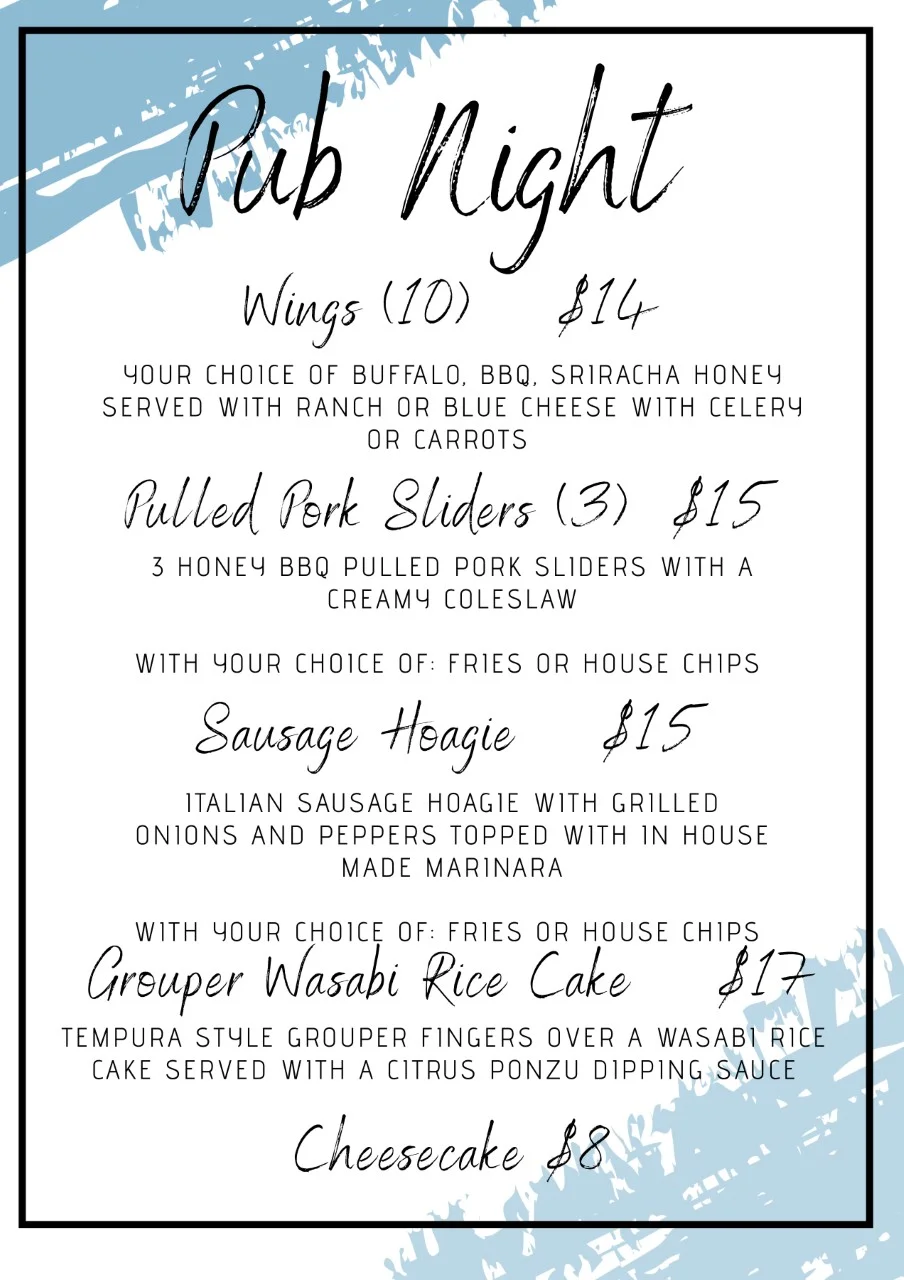 Pub Night
Wings (10) $14
YOUR CHOICE OF BUFFALO, BBQ, SRIRACHA HONEY
SERVED WITH RANCH OR BLUE CHEESE WITH CELERY
OR CARROTS
Pulled Pork Sliders (3) $15
3 HONEY BBQ PULLED PORK SLIDERS WITH A
CREAMY COLESLAW
WITH YOUR CHOICE OF: FRIES OR HOUSE CHIPS
Sausage Hoagie $15
ITALIAN SAUSAGE HOAGIE WITH GRILLED
ONIONS AND PEPPERS TOPPED WITH IN HOUSE
MADE MARINARA
WITH YOUR CHOICE OF: FRIES OR HOUSE CHIPS
Grouper Wasabi Rice Cake $17
TEMPURA STYLE GROUPER FINGERS OVER A WASABI RICE
CAKE SERVED WITH A CITRUS PONZU DIPPING SAUCE
Cheesecake $8